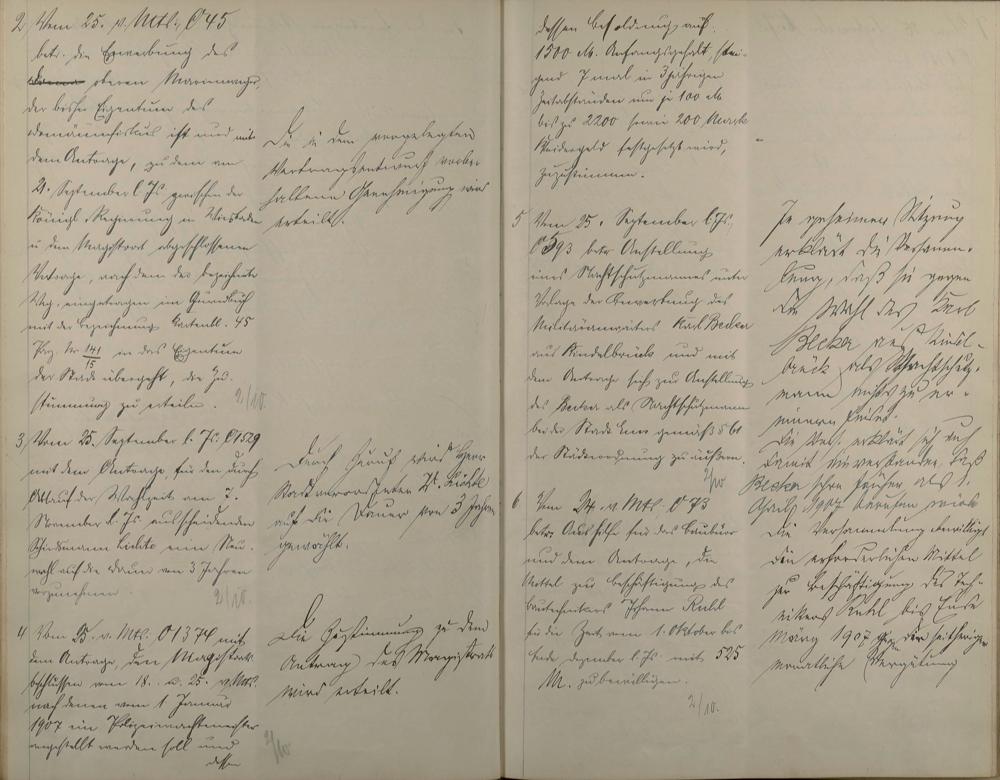 2 Vom 25. v. Mts. O 45
betr. die Erwerbung des
oberen Marienweges,
der bisher Eigentum des
Domänenfiskus ist und mit
dem Antrage, zu dem am
21. September l. Js. zwischen der
Königl. Regierung in Wiesbaden
u. dem Magistrat abgeschlossenen
Vertrage, nach dem der bezeichnete
Weg, eingetragen im Grundbuch
mit der Bezeichnung Kartenbl. 45
Parz. Nr 141/15 in das Eigentum
der Stadt übergeht, die Zu-
stimmung zu erteilen.
2/10.
Die in dem vorgelegten
Vertragsentwurf vorbe-
haltene Genehmigung wird
erteilt.
3 Vom 25. September l. Js. O 1529
mit dem Antrage, für den durch
Ablauf der Wahlzeit am 7.
November l. Js. ausscheidenden
Schiedsmann eine Neu-
wahl auf die Dauer von 3 Jahren
vorzunehmen.
2/10.
Durch Zuruf wird Herr
Stadtverordneter
auf die Dauer von 3 Jahren
gewählt.
4 Vom 25. v. Mts. O 1374 mit
dem Antrage, den Magistrats-
beschlüssen vom 18. u. 25. v. Mts.
nach denen vom 1. Januar
1907 ein Polizeiwachtmeister
angestellt werden soll und
dessen
2/10
Die Zustimmung zu dem
Antrag des Magistrats
wird erteilt.
dessen Besoldung auf
1500 M. Anfangsgehalt, stei-
gend 7 mal in 3jährigen
Zeitabständen um je 100 M
bis zu 2200 sowie 200 Mark
Kleidergeld festgesetzt wird,
zuzustimmen.
5 Vom 25. September l. Js.
O 593 betr. Anstellung
eines Nachtschutzmannes unter
Vorlage der Bewerbung des
Militäranwärters Karl Becker
aus Kindelbrück und mit
dem Antrage sich zur Anstellung
des Becker als Nachtschutzmann
bei der Stadt Ems gemäß § 61
der Städteordnung zu äußern.
2/10
In geheimer Sitzung
erklärt die Versamm-
lung, daß sie gegen
die Wahl des Karl
Becker aus Kindel-
brück als Nachtschutz-
mann nichts zu er-
innern habe.
Die Vers. erklärt sich auch
damit einverstanden, daß
Becker schon früher als 1.
April 1907 berufen wird
6 Vom 24. v. Mts. O 73
betr. Aushilfe für das Baubüro
und dem Antrage, die
Mittel zur Beschäftigung des
Bautechnikers Johann Rubel
für die Zeit vom 1. Oktober bis
Ende Dezember l. Js. mit 525
M. zu bewilligen.
2/10.
Die Versammlung bewilligt
die erforderlichen Mittel
zur Beschäftigung des Tech-
nikers Rubel bis Ende
März 1907 gegen die seitherige
monatliche Vergütung